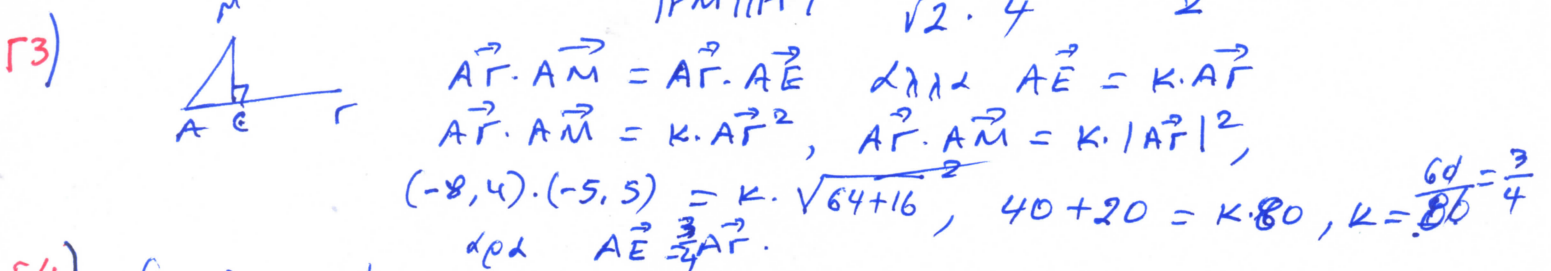 √2 · 4 2
Γ3)
Μ
Α Ε Γ
ΑΓ⃗ · ΑΜ⃗ = ΑΓ⃗ · ΑΕ⃗ αλλα ΑΕ⃗ = κ · ΑΓ⃗
ΑΓ⃗ · ΑΜ⃗ = κ · ΑΓ⃗², ΑΓ⃗ · ΑΜ⃗ = κ · |ΑΓ⃗|²,
(-8, 4) · (-5, 5) = κ · √(64+16)², 40 + 20 = κ·80, κ = 60/80 = 3/4
αρα ΑΕ⃗ = 3/4 ΑΓ⃗.